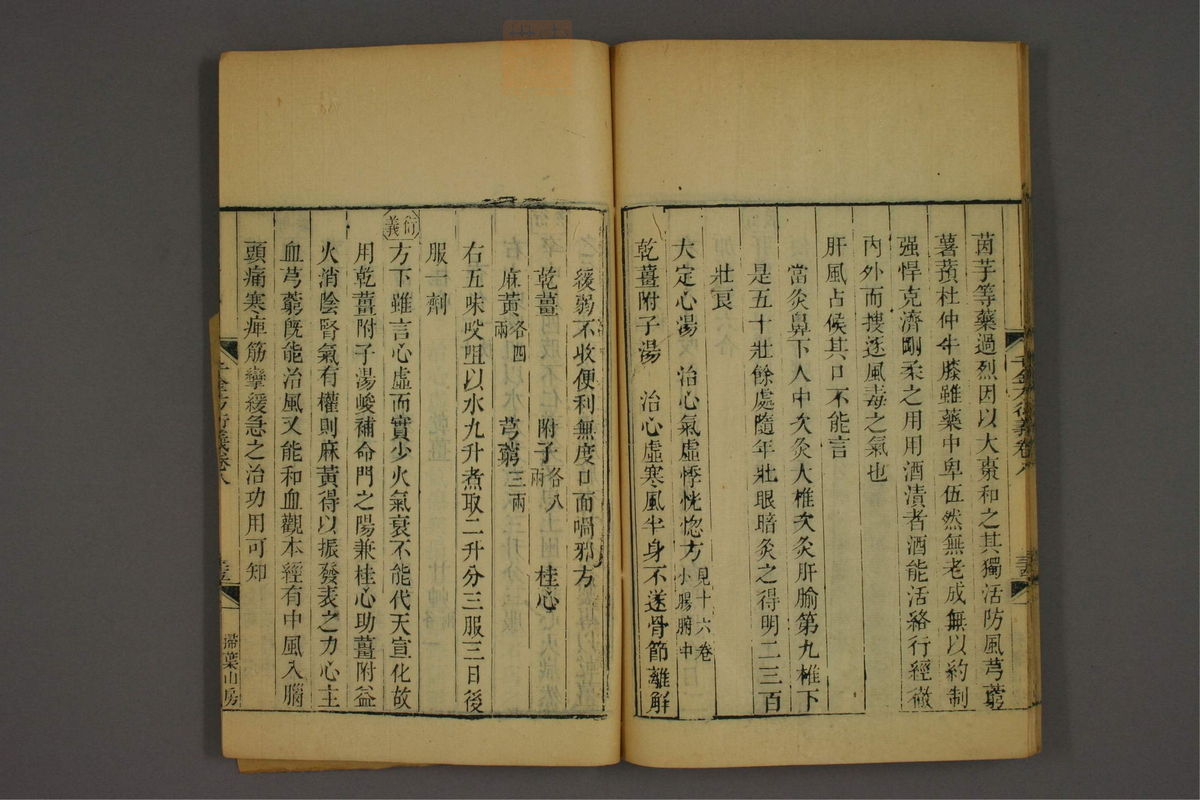 茵芋等藥過烈因以大棗和之其獨活防風芎藭
薯蕷杜仲牛膝雖藥中卑伍然無老成無以約制
强悍克濟剛柔之用用酒漬者酒能活絡行經徹
內外而搜逐風毒之氣也
肝風占候其口不能言
當灸鼻下人中次灸大椎次灸肝腧第九椎下
是五十壯餘處隨年壯眼暗灸之得明二三百
壯良
大定心湯 治心氣虛悸恍惚方見十六卷小腸腑中
乾薑附子湯 治心虛寒風半身不遂骨節離解
緩弱不收便利無度口面喎邪方
乾薑 附子各八兩 桂心
麻黃各四兩 芎藭三兩
右五味㕮咀以水九升煮取二升分三服三日後
服一劑
衍義
方下雖言心虛而實少火氣衰不能代天宣化故
用乾薑附子湯峻補命門之陽兼桂心助薑附益
火消陰腎氣有權則麻黃得以振發表之力心主
血芎藭既能治風又能和血觀本經有中風入腦
頭痛寒痺筋攣緩急之治功用可知
千金方衍義卷八
掃葉山房